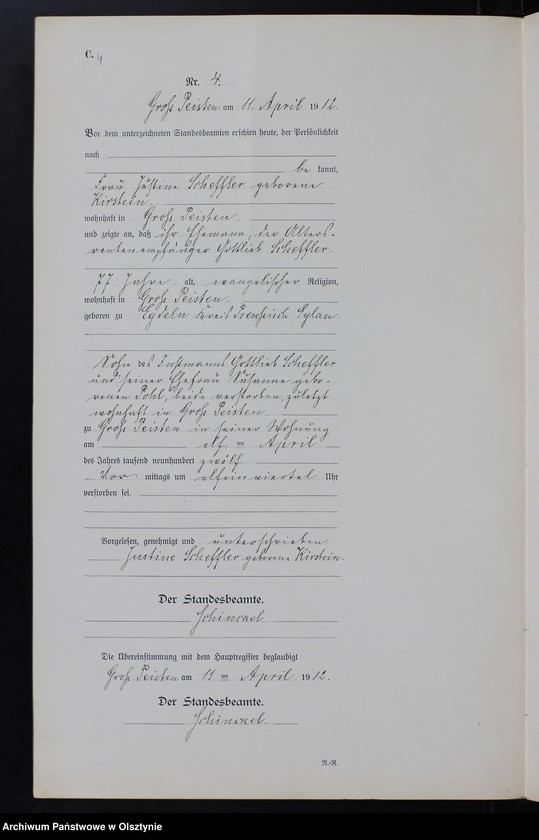 C. 4
Nr. 4.
Groß Peisten am 11. April 1912.
Vor dem unterzeichneten Standesbeamten erschien heute, der Persönlichkeit
nach
be kannt,
Frau Justine Scheffler geborene
Kirstein.
wohnhaft in Groß Peisten.
und zeigte an, daß ihr Ehemann, der Alters-
rentenempfänger Gottlieb Scheffler
77 Jahre alt, evangelischer Religion,
wohnhaft in Groß Peisten.
geboren zu Kreis Preußisch Eylau.
Sohn des Instmanns Gottlieb Scheffler
und seiner Ehefrau Susanne gebo-
renen Pohl, beide verstorben, zuletzt
wohnhaft in Groß Peisten.
zu Groß Peisten in seiner Wohnung
am elf ten April
des Jahres tausend neunhundert zwölf
Vor mittags um elfeinviertel Uhr
verstorben sei.
Vorgelesen, genehmigt und unterschrieben
Justine Scheffler geborene Kirstein.
Der Standesbeamte.
Schinckel
Die Übereinstimmung mit dem Hauptregister beglaubigt
Groß Peisten am 11 ten April 1912.
Der Standesbeamte.
Schinckel
R.-R.
Archiwum Państwowe w Olsztynie